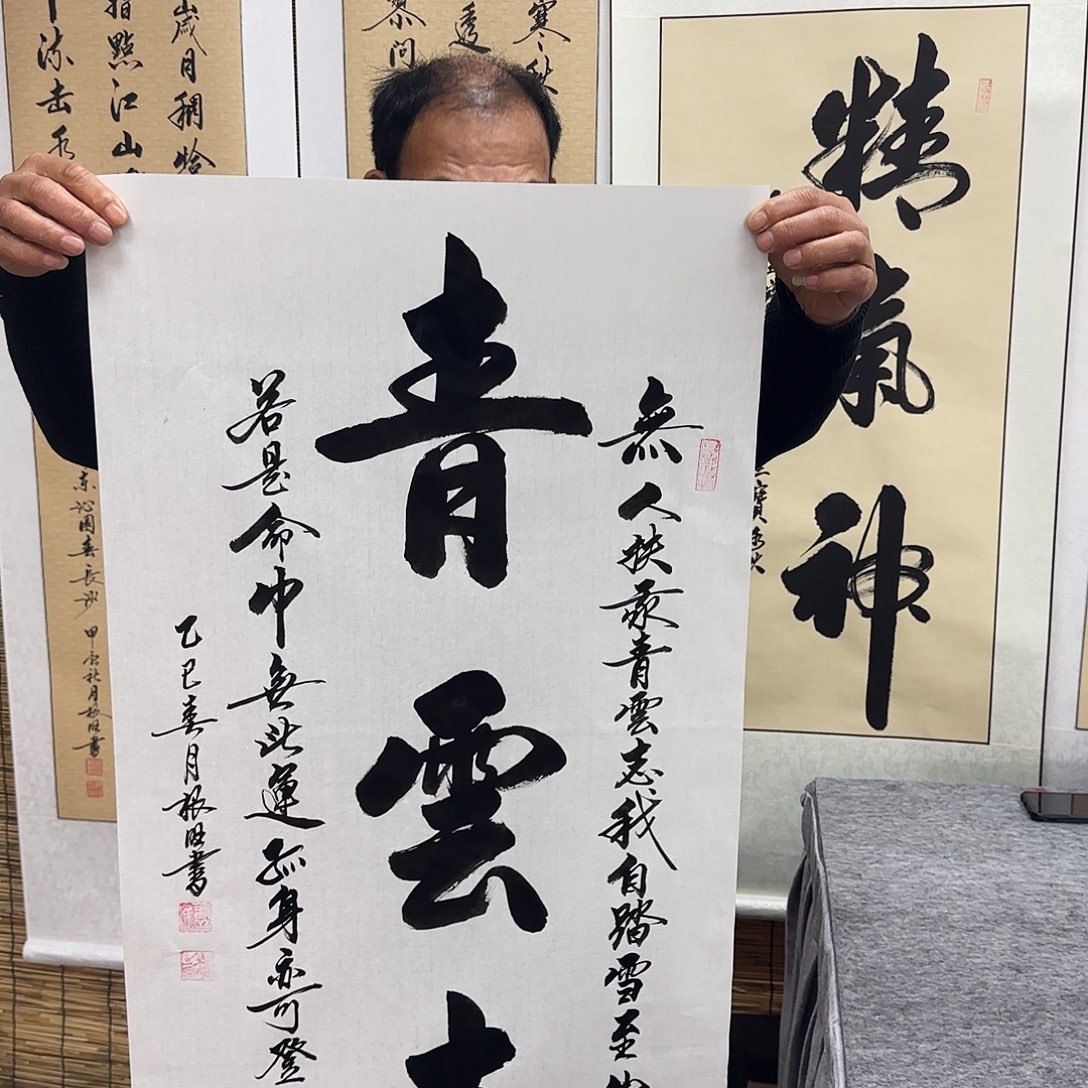 精氣神
無人扶我青雲志我自踏雪至
青雲
若是命中無此運孤身亦可登
乙巳春月根旺書
寒秋
透
問
歲月稠恰
指點江山
流击水
沁園春長沙 甲辰秋月根旺書